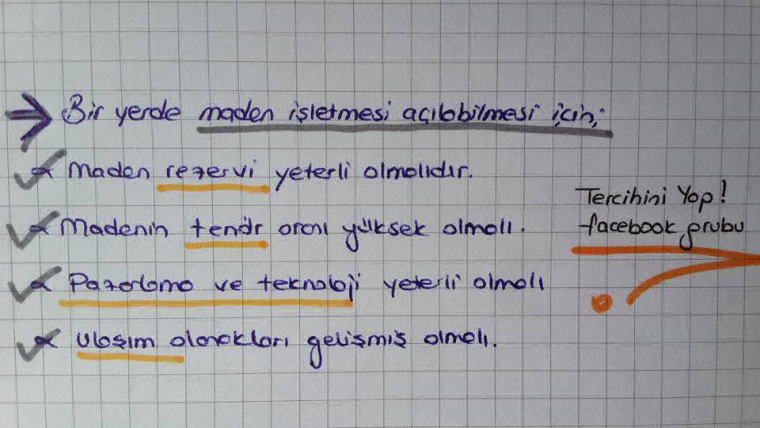 Bir yerde maden işletmesi açılabilmesi için;
Maden rezervi yeterli olmalıdır.
Madenin tenör oranı yüksek olmalı.
Pazarlama ve teknoloji yeterli olmalı
Ulaşım olanakları gelişmiş olmalı.
Tercihini Yap!
facebook grubu